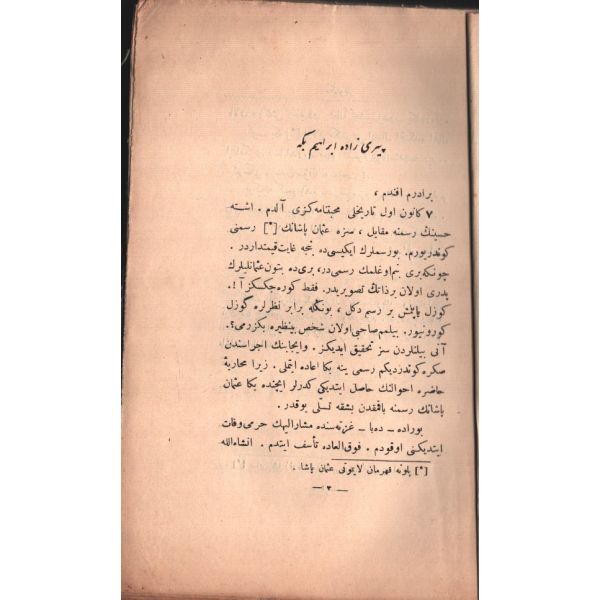 پیری زاده ابراهیم بکه
برادرم افندم ،
۷ كانون اول تاریخلی محبتنامه كزی آلدم . اشته
حسینك رسمنه مقابل ، سزه عثمان پاشانك [*] رسمنی
كوندریورم. بورسملرك ایكیسی ده بنجه غایت قیمتداردر .
چونكه بری بنم اوغلمك رسمی در، بری ده بتون عثمانلیلرك
پدری اولان بر ذاتك تصویریدر. فقط كوره جكسكز آ !.
كوزل یاپلمش بر رسم دكل ، بونكله برابر نظرلره كوزل
كورونیور. بیلمم صاحبی اولان شخص بینظیره بكزرمی ؟.
آنی بیلنلردن سز تحقیق ایدیكز . وایجابنك اجراسندن
صكره كوندردیكم رسمی ینه بكا اعاده ایتملی . زیرا محاربۀ
حاضره احوالنك حاصل ایتدیكی كدرلر ایچنده بكا عثمان
پاشانك رسمنه باقمقدن بشقه تسلی یوقدر .
بوراده ـ ده با ـ غزته سنده مشارالیهك حرمی وفات
ایتدیكنی اوقودم . فوق العاده تأسف ایتدم . انشاءالله
[*] پلونه قهرمان لایموتی عثمان پاشا .
— ۳ —